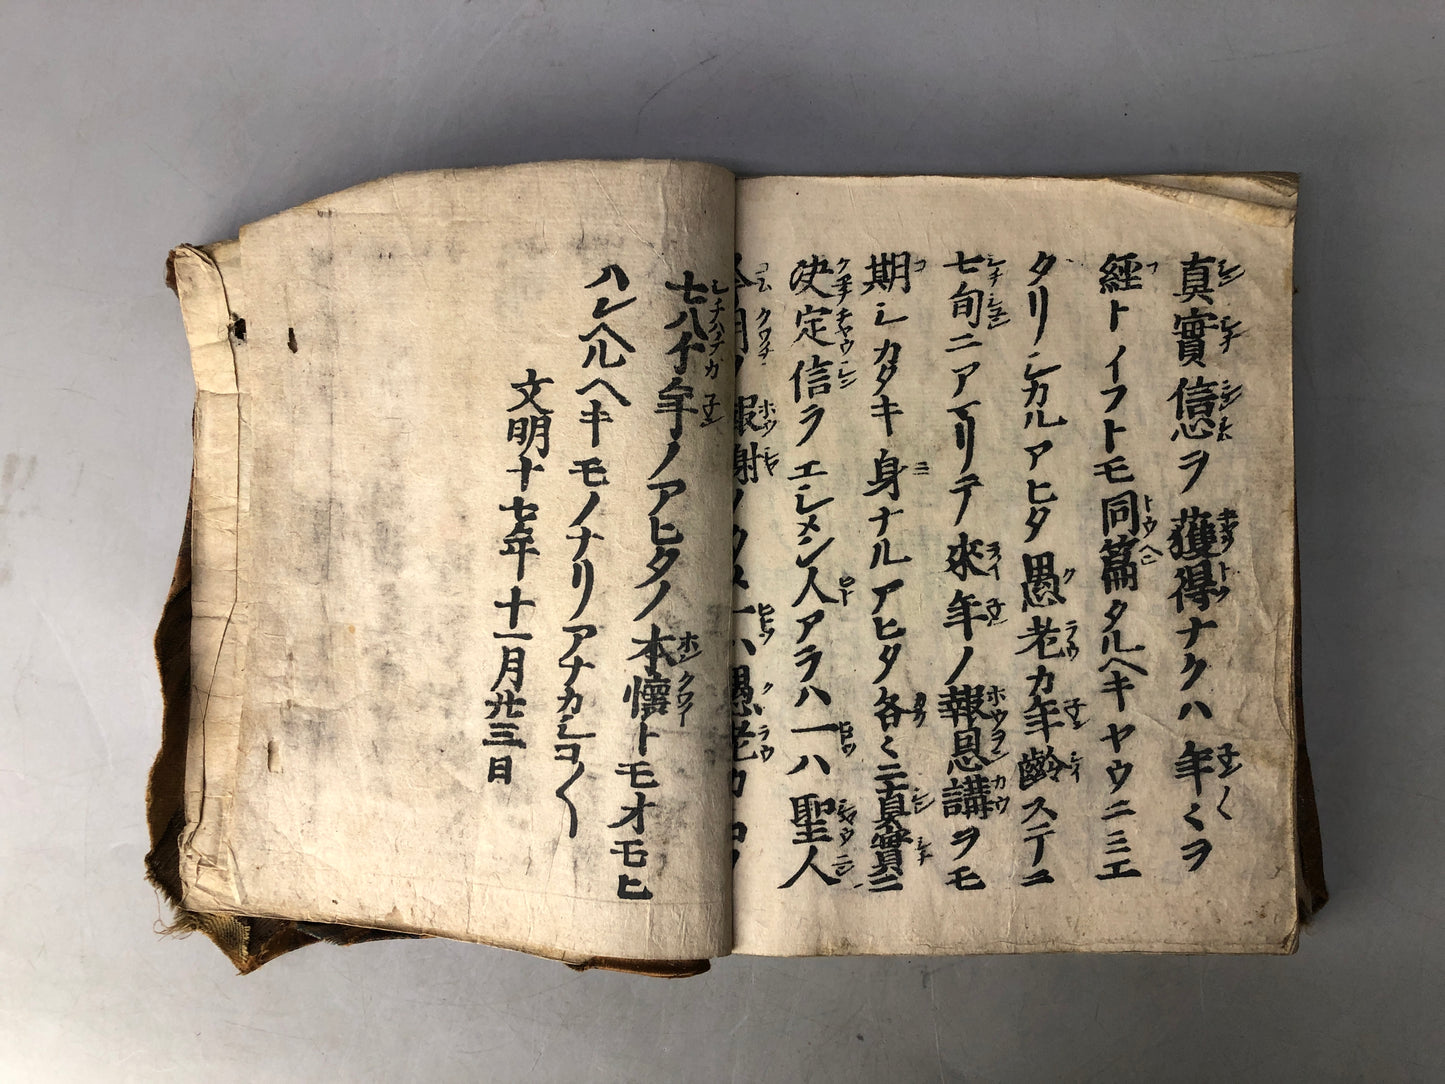 真實信心ヲ獲得ナクハ年〻ヲ
經トイフトモ同篇タルヘキヤウニミエ
タリシカルアヒタ愚老カ年齡ステニ
七旬ニアマリテ來年ノ報恩講ヲモ
期シカタキ身ナルアヒタ各〻ニ真實ニ
决定信ヲエシメン人アラハ一ハ聖人
今月ノ報謝ノタメ一ハ愚老カコノ
七八个年ノアヒタノ本懷トモオモヒ
ハンヘルヘキモノナリアナカシコ〱
文明十七年十一月廿三日